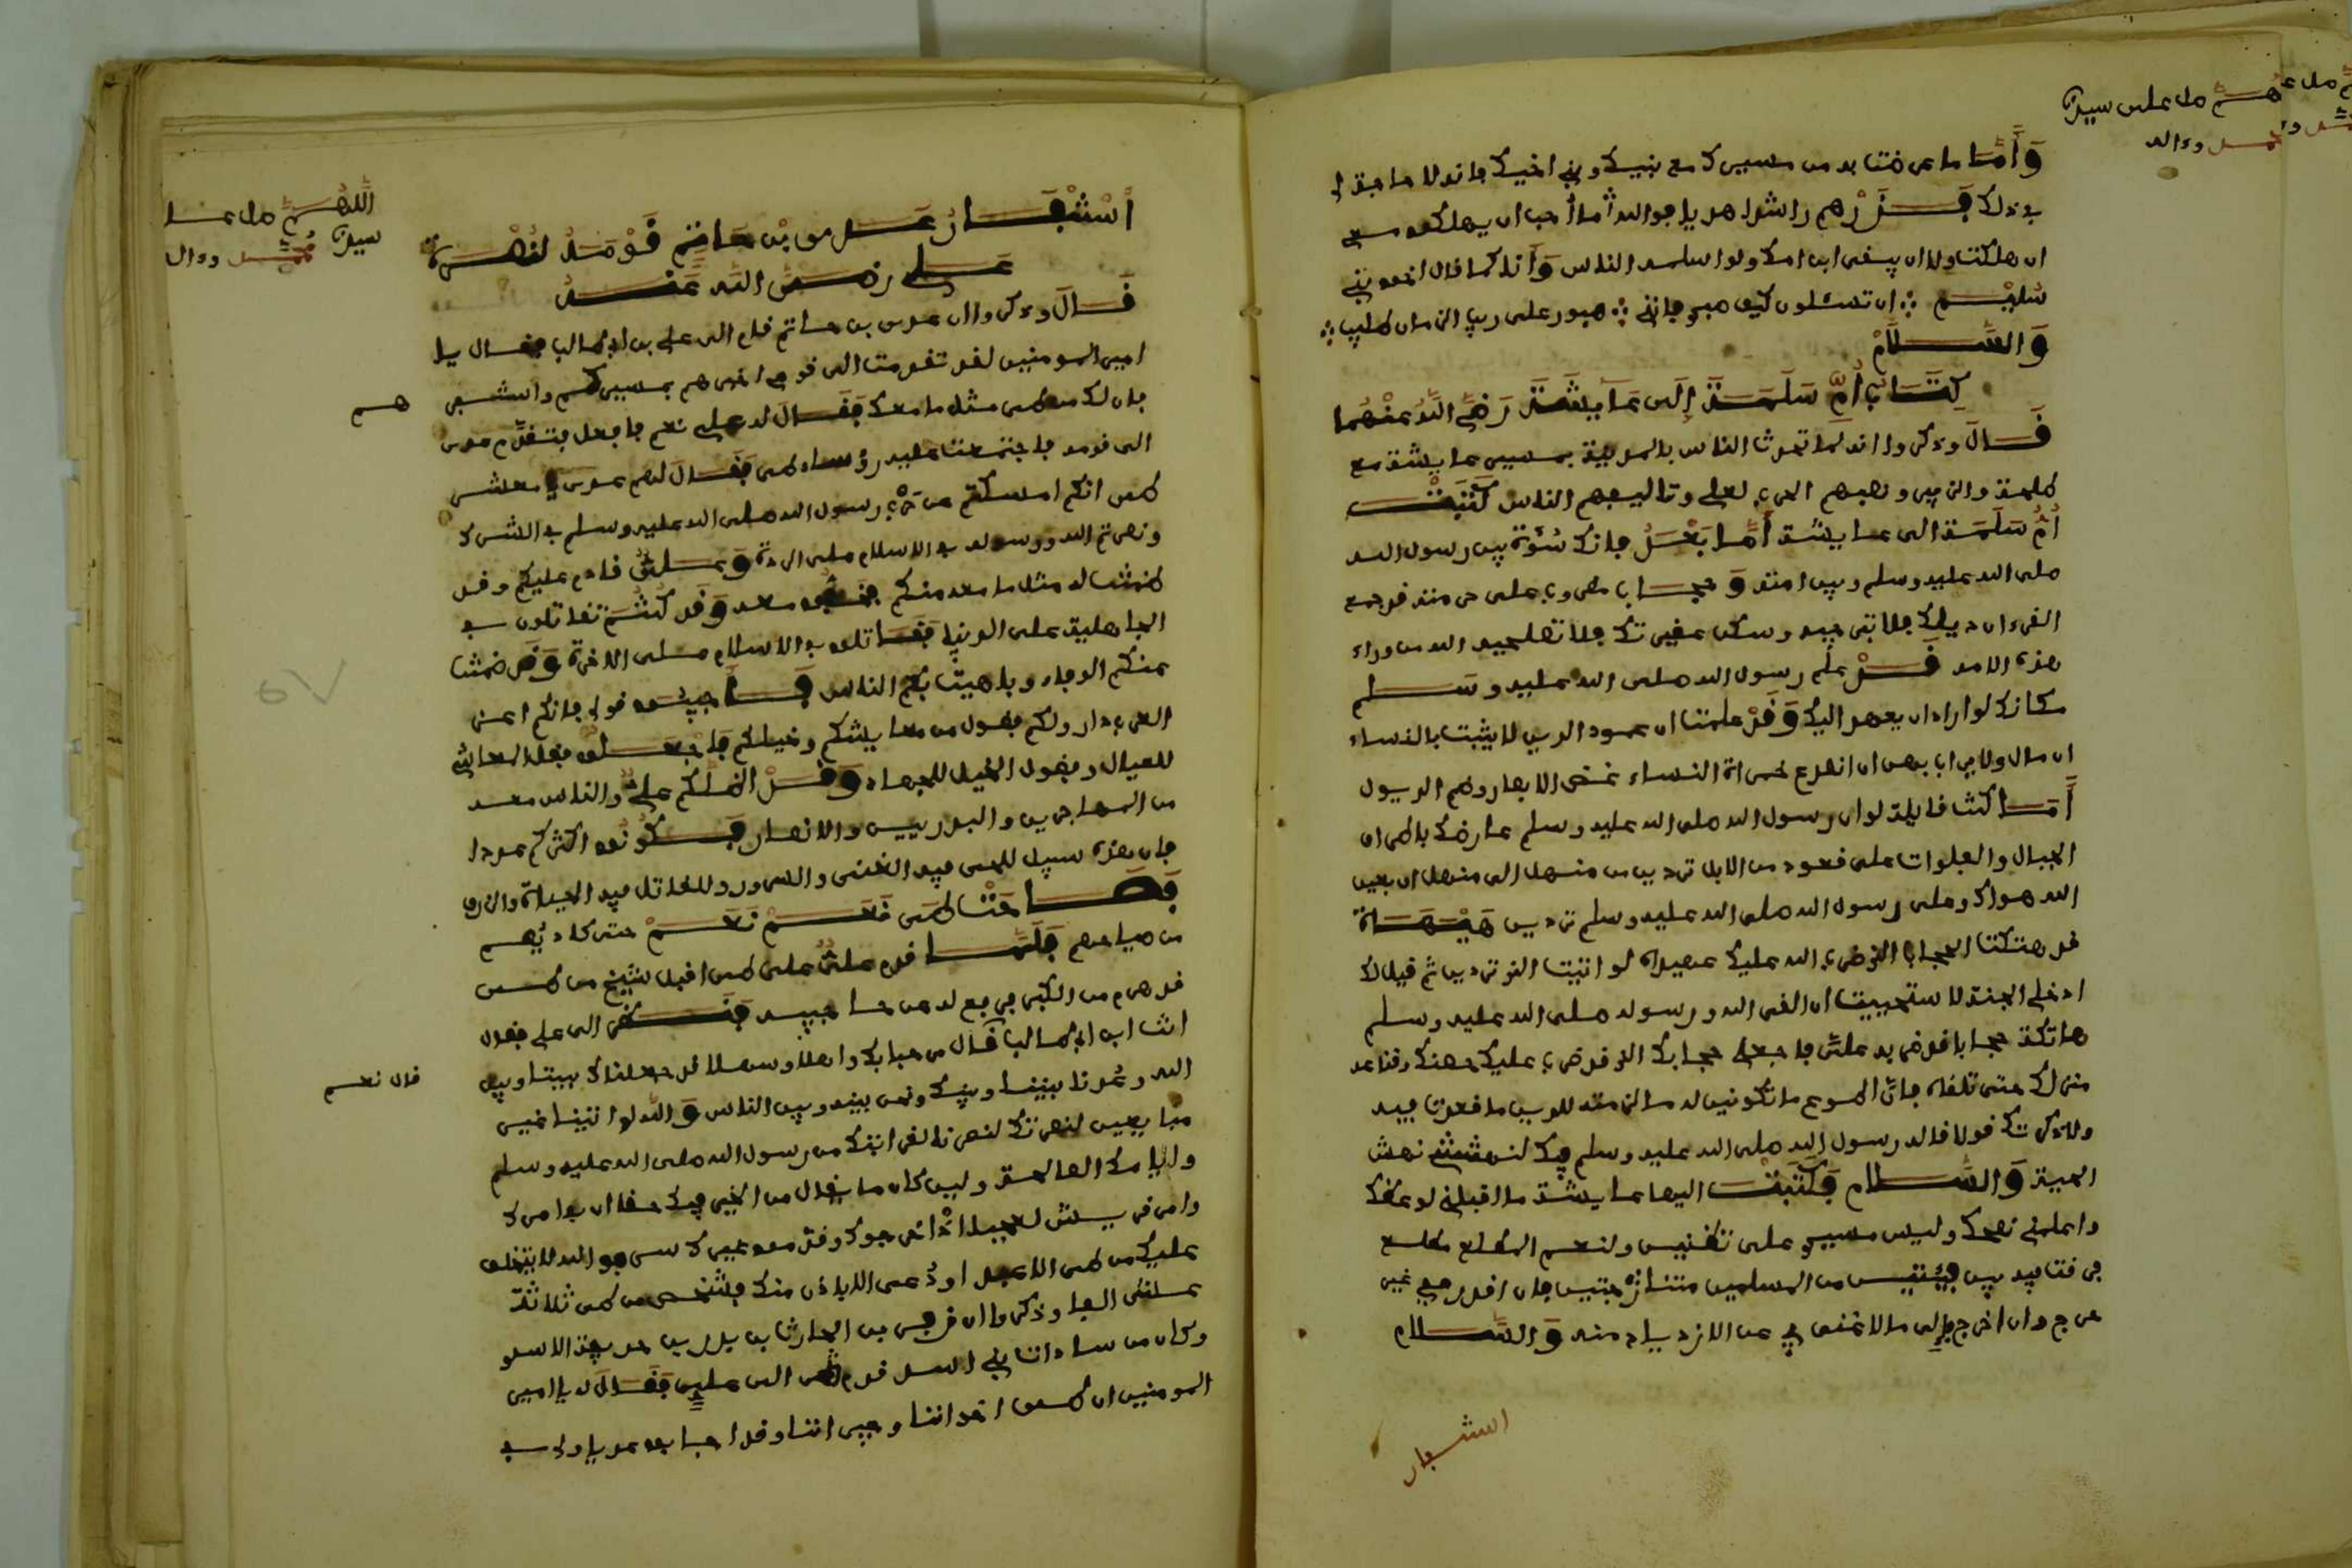 اللهم صل على سيدنا
محمد وءاله
وأما ما عرضت به من مسيرك مع بنيك وبني أخيك فإنه لا حاجة لي
في ذلك فذرهم راشدا هديا فوالله ما أحب ان يهلكوا معي
ان هلكت ولا ان يخفى ابن امك ولو اسلمه الناس وأنا كما قال اخو بني
سليم ∴ ان تسئلون كيف صبري فإنني ∴ صبور على ريب الزمان صليب ∴
والسلام
كتاب أم سلمة إلى عايشة رضي الله عنهما
قال وذكروا انه لما تحدث الناس بالمدينة بمسير عايشة مع
طلحة والزبير ونصبهم الحرب لعلي وتاليفهم الناس كتبت
أم سلمة الى عايشة أما بعد فإنك سدة بين رسول الله
صلى الله عليه وسلم وبين امته وحجاب مضروب على حرمته قد جمع
القرءان ذيلك فلا تبذخيه وسكن عقيرتك فلا تصحريه الله من وراء
هذه الامة قد علم رسول الله صلى الله عليه وسلم
مكانك لو اراد ان يعهد اليك وقد علمت ان عمود الدين لا يثبت بالنساء
ان مال ولا يراب بهن ان انصدع خمراة النساء غض الابصار وضم الذيول
ما كنت قايلة لو ان رسول الله صلى الله عليه وسلم عارضك باطراف
الجبال والفلوات على قعود من الابل تردين من منهل الى منهل ان بعين
الله هواك وعلى رسول الله صلى الله عليه وسلم تردين هيهات
قد هتكت الحجاب الذي ضرب الله عليك عهيداه لو اتيت الذي تردين ثم قيل لك
ادخلي الجنة لاستحييت ان القى الله ورسوله صلى الله عليه وسلم
هاتكة حجابا قد ضربه علي فاجعلي حجابك الذي ضرب عليك حصنك وقاعد
منزلك حتى تلقاه فان اطوع ما تكونين له ما لزمته للدين ما قعدت فيه
ولا ذكرتك قولا قاله رسول الله صلى الله عليه وسلم فيك لنهشتني نهش
الحية والسلام فكتبت اليها عايشة ما اقبلني لوعظك
واعلمني نصحك وليس مسيري على تظنين ولنعم المطلع مطلع
فرقت فيه بين فئتين من المسلمين متناجزتين فان اقعد ففي غير
حرج وان اخرج فإلى ما لا غنى بي عن الازدياد منه والسلام
استنفار
اللهم صل على
سيدنا محمد وءال
أستنفار عدي بن حاتم قومه لنصرة
علي رضي الله عنه
قال وذكروا ان عدي بن حاتم قام الى علي بن ابي طالب فقال يا
امير المومنين لقد تقدمت الى قومي اخبرهم بمسيركم واستنفرهم
فان لك من طي مثل ما معك فقال له علي نعم فافعل فتقدم عدي
الى قومه فاجتمعت عليه رؤساء طي فقال لهم عدي يا معشر
طي انكم امسكتم عن حرب رسول الله صلى الله عليه وسلم في الشرك
ونصرتم الله ورسوله في الاسلام على الردة وعلي قادم عليكم وقد
ضمنت له مثل ما معه منكم فخفوا معه وقد كنتم تقاتلون في
الجاهلية على الدنيا فقاتلوا في الاسلام على الاخرة وقد ضمنت
عنكم الوفاء وباهيت بكم الناس فأجيبوا قولي فانكم اعز
العرب دار ولكم فضول من معايشكم وخيلكم فاجعلوا فضل المعايش
للعيال وفضول الخيل للجهاد وقد اظلكم علي والناس معه
من المهاجرين والبدريين والانصار فكونوا اكثركم عددا
فان هذا سبيل للحي فيه الغنى والسرور وللقاتل فيه الحياة والرزق
فصاحت طي نعم نعم حتى كاد يصم
من صياحهم فلما قدم علي على طي اقبل شيخ من طي
قد هرم من الكبر فرفع له من حاجبيه فنظر الى علي فقال
انت ابن ابي طالب قال نعم قال مرحبا بك واهلا وسهلا قد جعلناك بيننا وبين
الله وعديا بيننا وبينك ونحن بينه وبين الناس والله لو اتيتنا غير
مبايعين لنصرتك لنصرنا لقرابتك من رسول الله صلى الله عليه وسلم
وايامك الصالحة ولين كان ما يقال من الخير فيك حقا ان في امرك
وامر قريش لعجبا اذ اخرجوك وقدموا غيرك سر فوالله لا يتخلف
عليك من طي الا عبد او دعي الا باذن منك فشخص من طي ثلاثة
عشر الفا وذكروا ان زفر بن الحارث بن يزيد بن حذيفة الاسدي
وكان من سادات بني اسد قدم الى علي فقال له يا امير
المومنين ان طيا اخواننا وجيراننا وقد اجابوا عديا ولي في